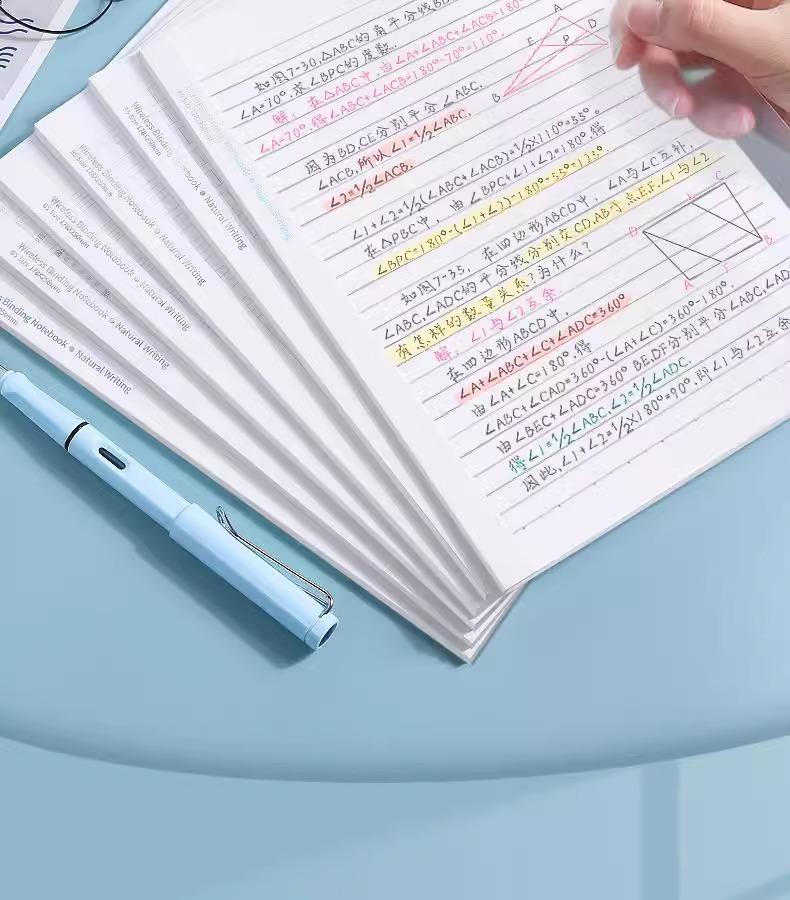 如图7-30,△ABC的角平分线BD
∠A=70°,求∠BPC的度数.
解: 在△ABC中,由∠A+∠ABC+∠ACB=180°
∠A=70°,得∠ABC+∠ACB=180°-70°=110°.
因为BD,CE分别平分∠ABC,
∠ACB,所以∠1=1/2∠ABC,
∠2=1/2∠ACB.
∠1+∠2=1/2(∠ABC+∠ACB)=1/2X110°=55°.
在△PBC中, 由∠BPC+∠1+∠2=180°,得
∠BPC=180°-(∠1+∠2)=180°-55°=125°.
如图7-35, 在四边形ABCD中, ∠A与∠C互补,
∠ABC,∠ADC的平分线分别交CD,AB于点E,F,∠1与∠2
有怎样的数量关系?为什么?
解: ∠1与∠2互余.
在四边形ABCD中,
∠A+∠ABC+∠C+∠ADC=360°
由∠A+∠C=180°,得
∠ABC+∠CAD=360°-(∠A+∠C)=360°-180°.
由∠BEC+∠ADC=360° BE,DF分别平分∠ABC,∠AD
得∠1=1/2∠ABC,∠2=1/2∠ADC.
因此,∠1+∠2=1/2X180°=90°.即∠1与∠2互余
A
D
E
P
B
C
D
B
A
F
Wireless Binding Notebook ● Natural Writing
B5 Size 178X250mm
Wireless Binding Notebook ● Natural Writing
B5 Size 178X250mm
Wireless Binding Notebook ● Natural Writing
B5 Size 178X250mm
Wireless Binding Notebook ● Natural Writing
B5 Size 178X250mm
Binding Notebook ● Natural Writing